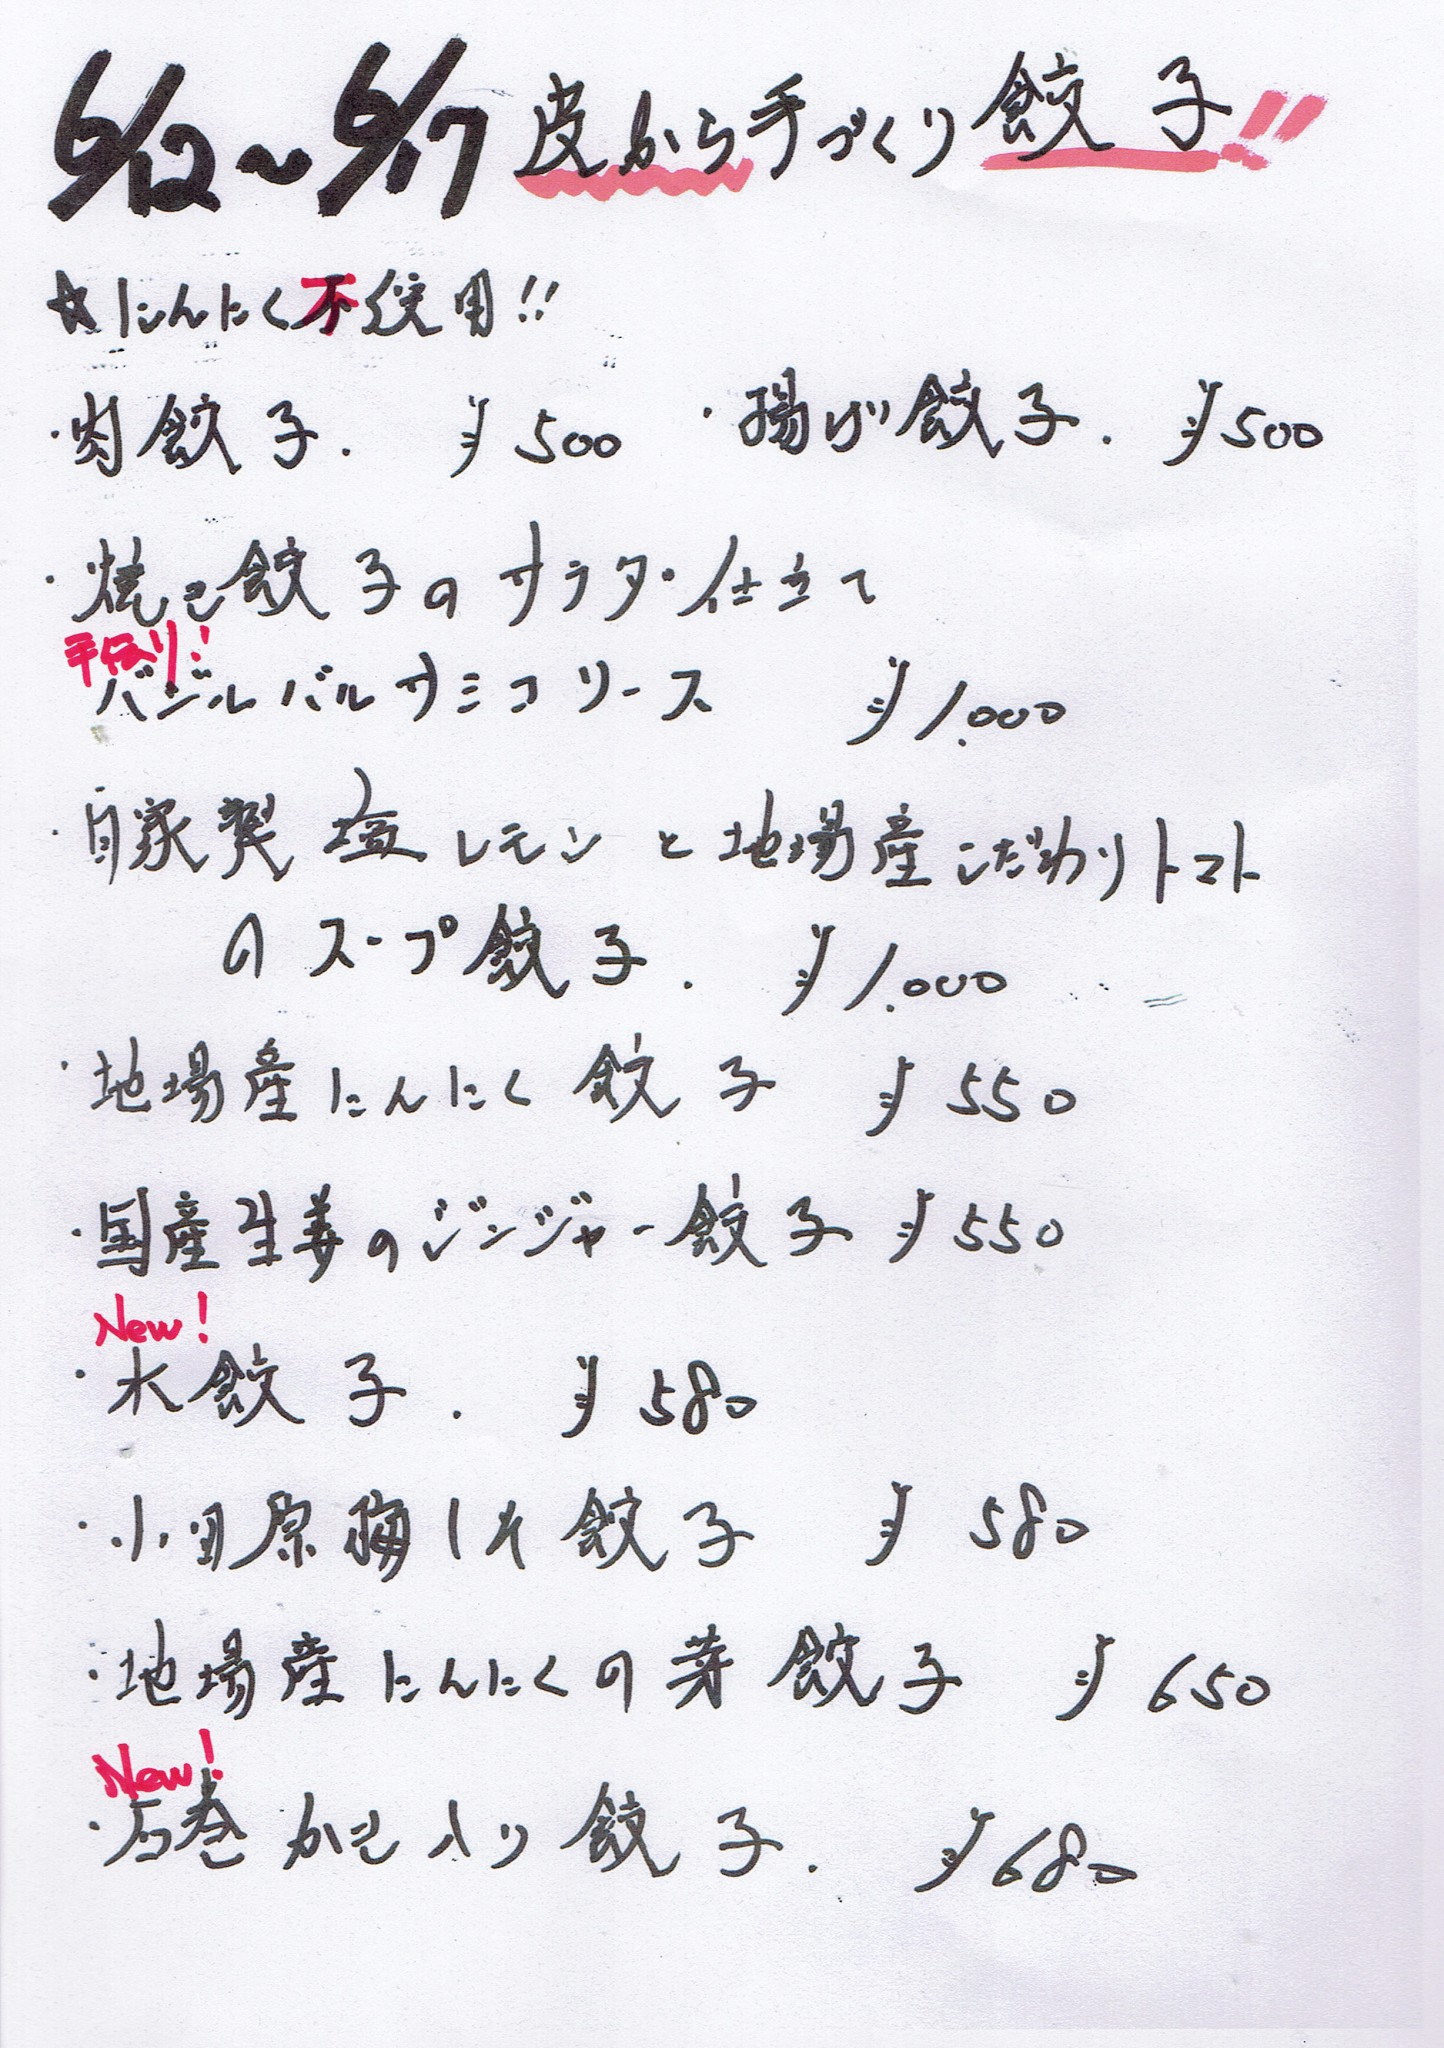 6/12〜6/17 皮から手づくり餃子!!
☆にんにく不使用!!
・肉餃子. ¥500 ・揚げ餃子. ¥500
・焼き餃子のサラダ仕立て
手作り!
バジルバルサミコソース ¥1.000
・自家製塩レモンと地場産こだわりトマト
のスープ餃子. ¥1.000
・地場産にんにく餃子 ¥550
・国産生姜のジンジャー餃子 ¥550
New!
・水餃子. ¥580
・小田原梅しそ餃子 ¥580
・地場産にんにくの芽餃子 ¥650
New!
・石巻かき入り餃子. ¥680